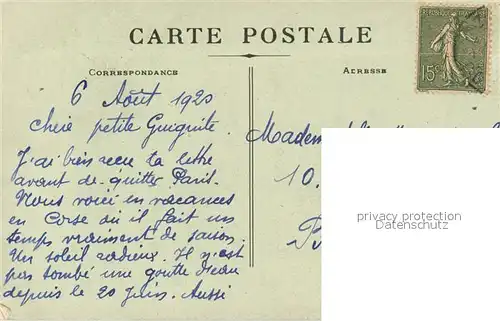 CARTE POSTALE
REPUBLIQUE FRANCAISE
15c
CORRESPONDANCE
ADRESSE
6 Août 1920
Chère petite Guiguite.
J'ai bien reçu ta lettre
avant de quitter Paris.
Nous voici en vacances
en Corse où il fait un
temps vraiment de saison.
Un soleil radieux. Il n'est
pas tombé une goutte d'eau
depuis le 20 Juin. Aussi
10.
privacy protection
Datenschutz